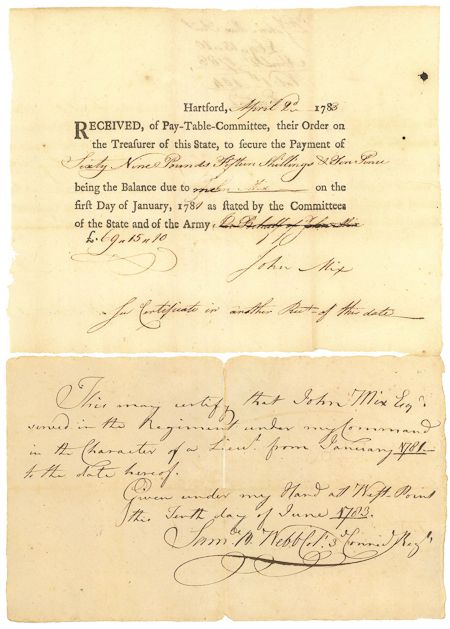 Hartford, April 2d 1783
RECEIVED, of Pay-Table-Committee, their Order on
the Treasurer of this State, to secure the Payment of
Sixty Nine Pounds Fifteen Shillings & Ten Pence
being the Balance due to me Mix on the
first Day of January, 1781 as stated by the Committees
of the State and of the Army, In Behalf of John Mix
£. 69 " 15 " 10
John Mix
Certificate in another Rect. of this date
This may certify that John Mix Esqr.
served in the Regiment under my Command
in the Character of a Lieut. from January 1781
to the date hereof.
Given under my Hand at West Point
this Tenth day of June 1783.
Saml. B Webb Col. 3d Connect Regt.